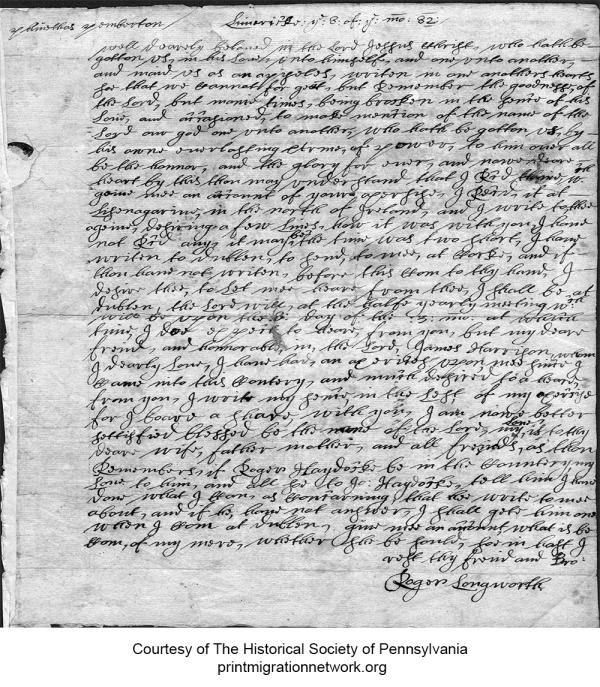 phinehas pemberton Limerick: yᵉ: 8: of: yᵉ: mo: 82:
well dearely beloved in the Lord Jessus Christ, who hath be-
gotton us, in his Love, unto himselfe, and one unto another,
and made us as an appisles, writen in one anothers hearts
soe that we cannot for gett, but Remember the goodness, of
the Lord, but manie times, being broken in the sence of his
Love, and occasioned, to make mention of the name of the
Lord our god one unto another, who hath be gotton us, by
his owne everlasting arme, of power, to him over all
be the honnor, and the glory for ever, and nowe deare
heart by this thou may understand that I Rd thine,
geive mee an account of yours, I Recd, it at
Lisnagarvie, in the north of Ireland, and I write to thee
againe, desiring a few Lines, how it was with you, I have
not Rd any, it may be the time was two short, I have
writen to dublin, to send, to mee, at Corke, and if
thou have not writen, before this Com to thy hand, I
desire thee, to Let mee heare from thee, I shall be at
dublin, the Lord will, at the halfe yearly meeting wch
will be upon the day of the 3: mo: at which
time I doe expect to heare, from you, but my deare
freind, and honnorable, in the Lord, James Harrison, whom
I dearly Love, I have had, an exercise upon, mee since I
Came into this Contery, and much desired to heare
from you, I write my sence, in the Left of my
for I beare a share with you, I am nowe better
sattisfied blessed be the name of the Lord, my Love is to thy
deare wife, father mother, and all freinds, as thou
Remembers, if Roger Haydocke be in the Countery my
Love to him, and all soe to Jo: Haydocke, tell him I have
done what I Can, as Consarning that hee write to mee
about, and if he, have not answer, I shall gete him one
when I Com at dublin, give mee an account what is be
Com, of my mere, whether shee be sould, soe in hast I
rest thy freind and Bro:
Roger Longworth
Courtesy of The Historical Society of Pennsylvania
printmigrationnetwork.org